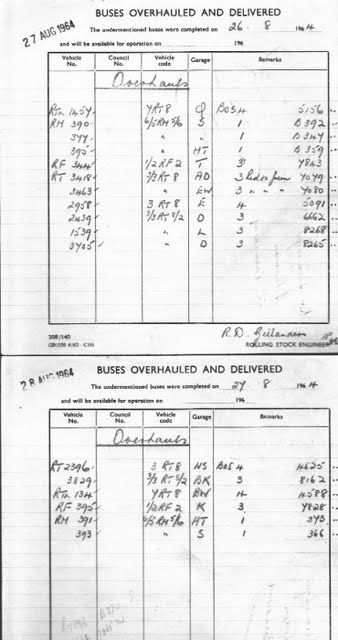 BUSES OVERHAULED AND DELIVERED
27 AUG 1964
The undermentioned buses were completed on 26 . 8 1964
and will be available for operation on 196
Vehicle No. Council No. Vehicle code Garage Remarks
Overhauls
RTL 1457 7RT8 Q BOS4 5156
RM 390 6/5RM5/6 S 1 B392
377 " " 1 B347
395 " HT 1 B359
RF 344 1/2RF2 T 3 7843
RT 3418 3/3 RT8 AD 3 7079
3463 " EW 3 " " " 7080
2958 3 RT8 E 4 5091
2439 3/3 RT8/2 O 3 6662
1539 " L 3 8268
3705 " D 3 8265
308/140
R.D.
ROLLING STOCK ENGINEER
BUSES OVERHAULED AND DELIVERED
28 AUG 1964
The undermentioned buses were completed on 27 . 8 1964
and will be available for operation on 196
Vehicle No. Council No. Vehicle code Garage Remarks
Overhauls
RT2396 3 RT8 NS BOS4 4625
3829 3/3 RT8/2 BK 3 8162
RTL 1341 7RT8 BW 4 4588
RF 395 1/2RF2 K 3 7828
RM 391 6/5RM5/6 HT 1 373
393 " S 1 366